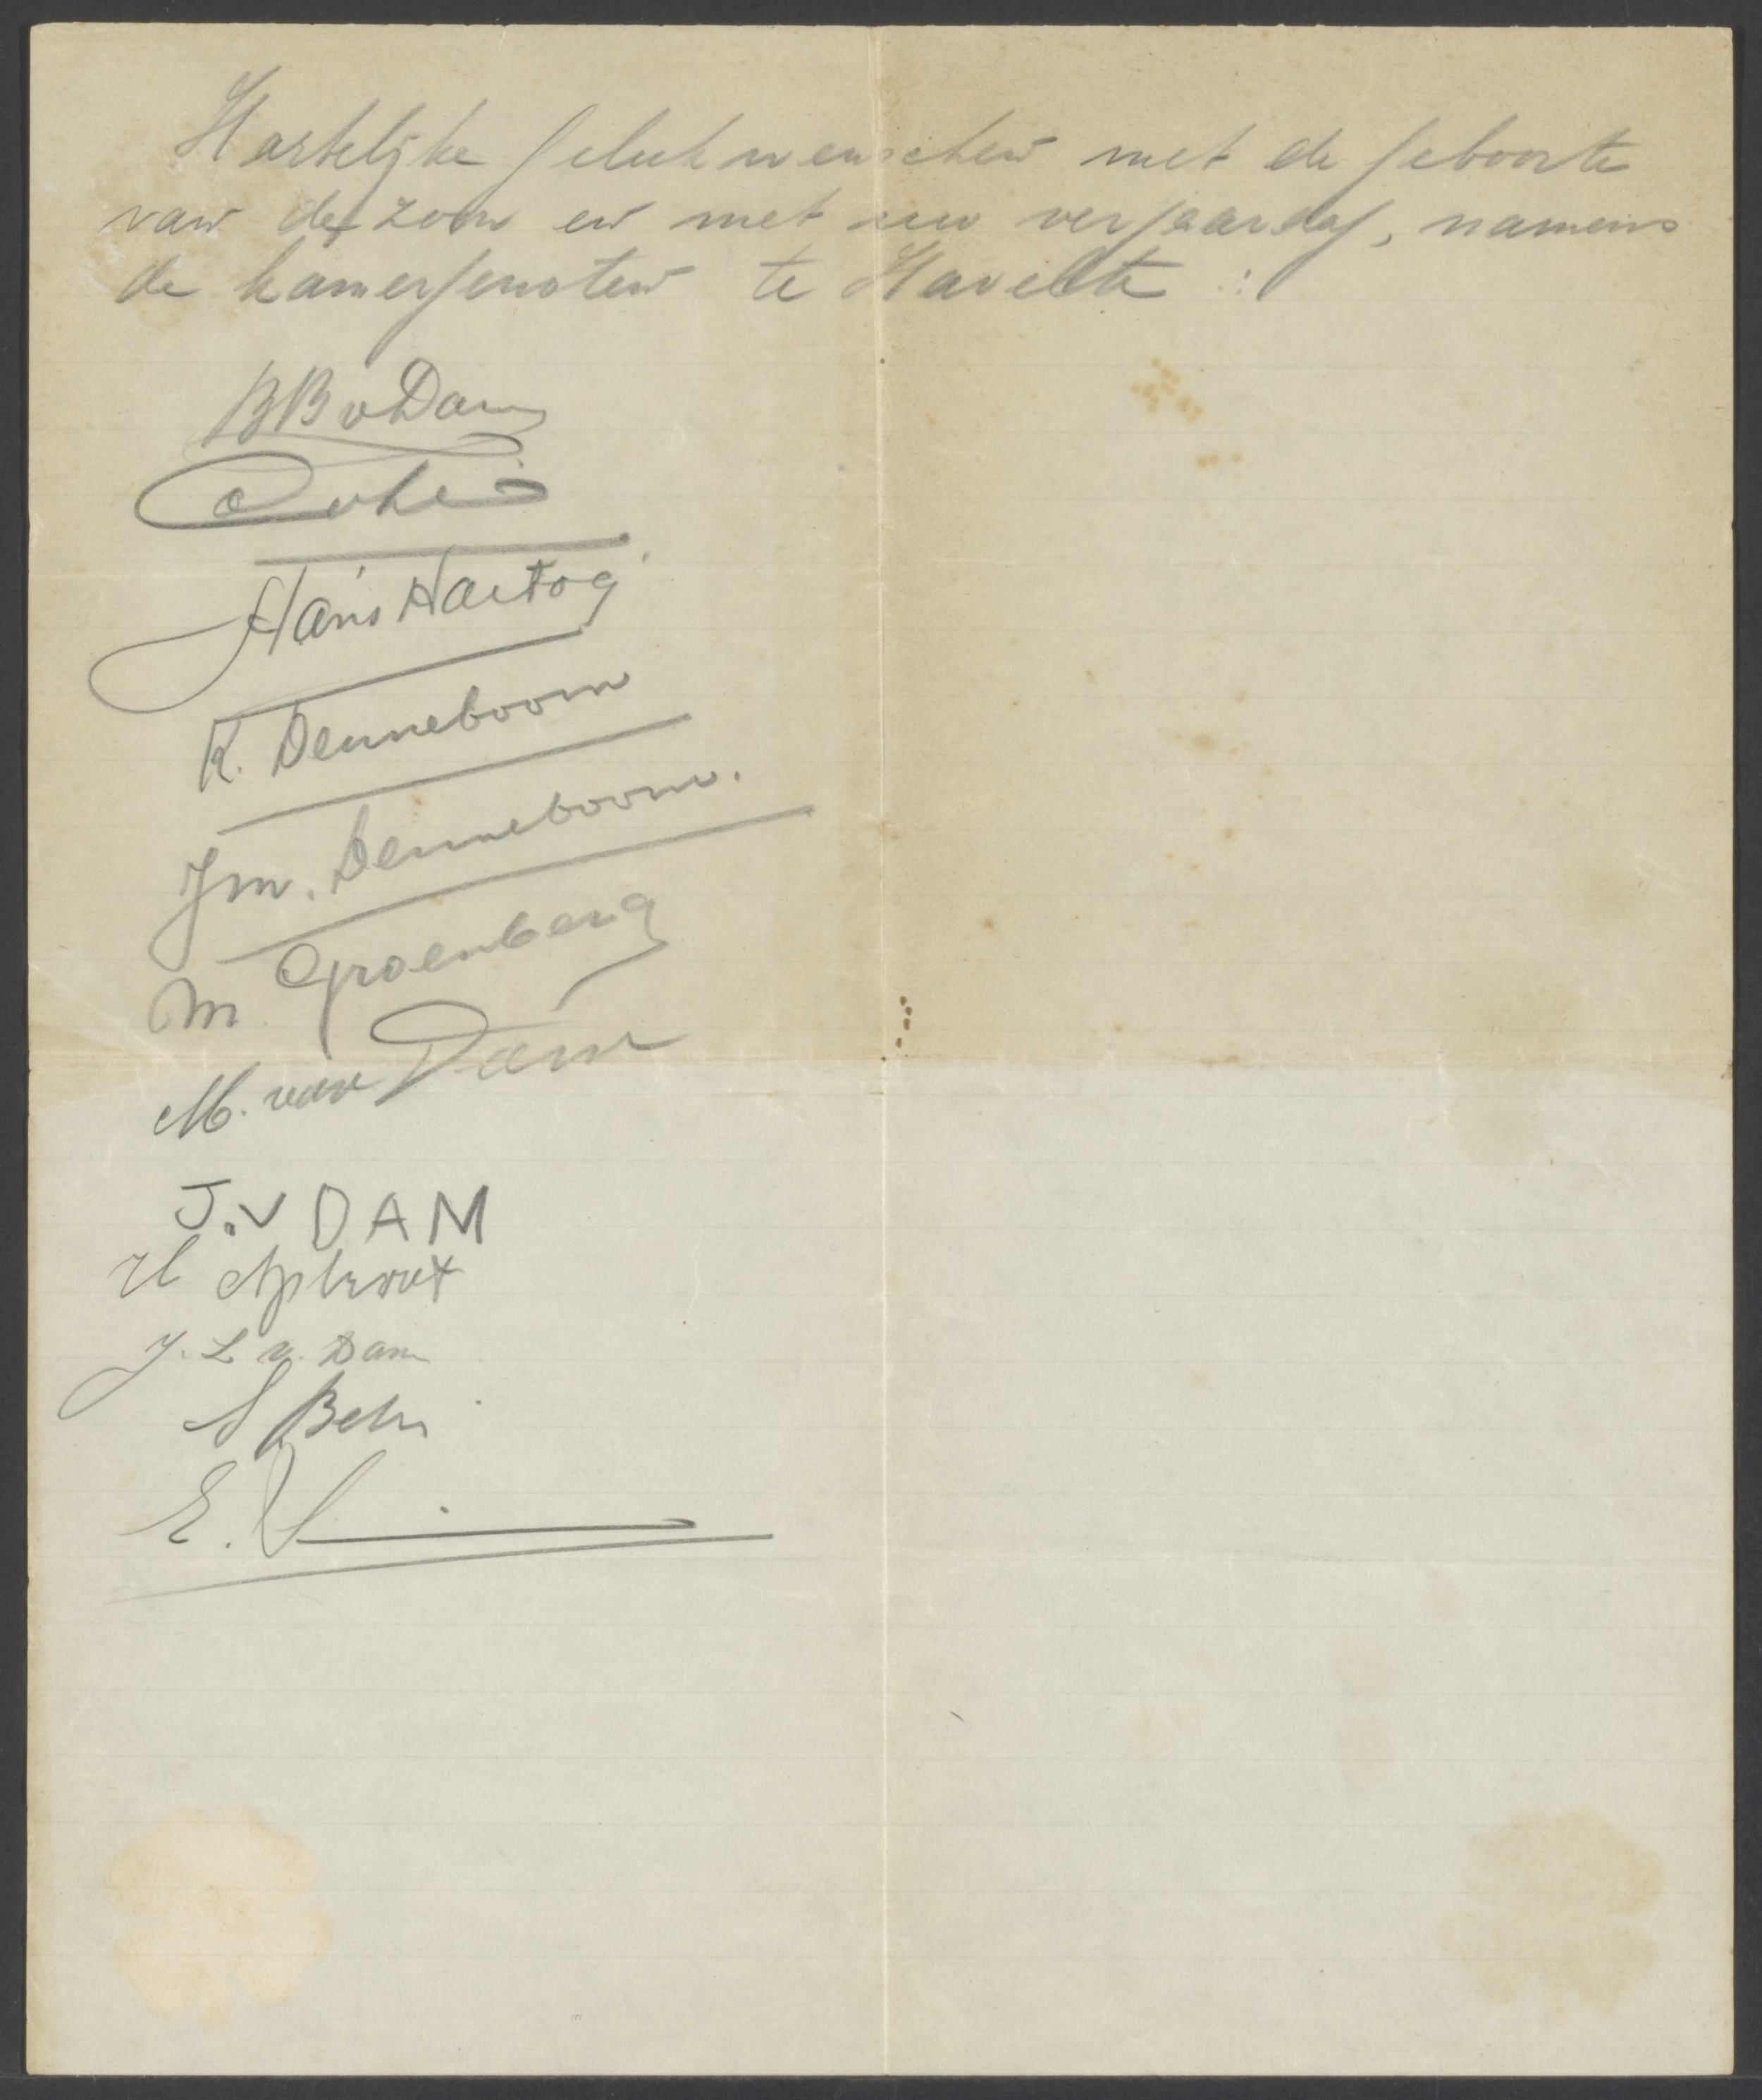 Hartelijke gelukwenschen met de geboorte
van de zoon en met uw verjaardag, namens
de kamergenoten te Havelte :
BB v Dam
Cohen
Hans Hartog
K. Denneboom
Jm. Denneboom.
M Groenberg
M. van Dam
J. v DAM
H Apterot
J. L v. Dam
S Behr
E.